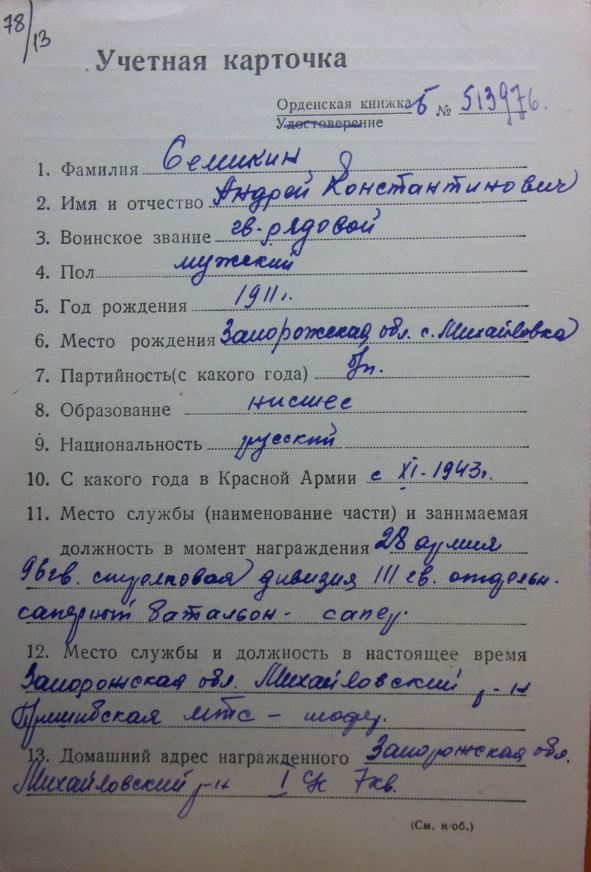 78/13
Учетная карточка
Орденская книжка Б № 513976.
Удостоверение
1. Фамилия Семикин
2. Имя и отчество Андрей Константинович
3. Воинское звание гв. рядовой
4. Пол мужский
5. Год рождения 1911 г.
6. Место рождения Запорожская обл. с. Михайловка
7. Партийность(с какого года) б/п.
8. Образование нисшее
9. Национальность русский
10. С какого года в Красной Армии с XI-1943 г.
11. Место службы (наименование части) и занимаемая
должность в момент награждения 28 армия
96 гв. стрелковая дивизия III гв. отдельн.
саперный батальон - сапер.
12. Место службы и должность в настоящее время
Запорожская обл. Михайловский р-н
Пришибская мтс -
13. Домашний адрес награжденного Запорожская обл.
Михайловский р-н I 7 кв.
(См. н/об.)